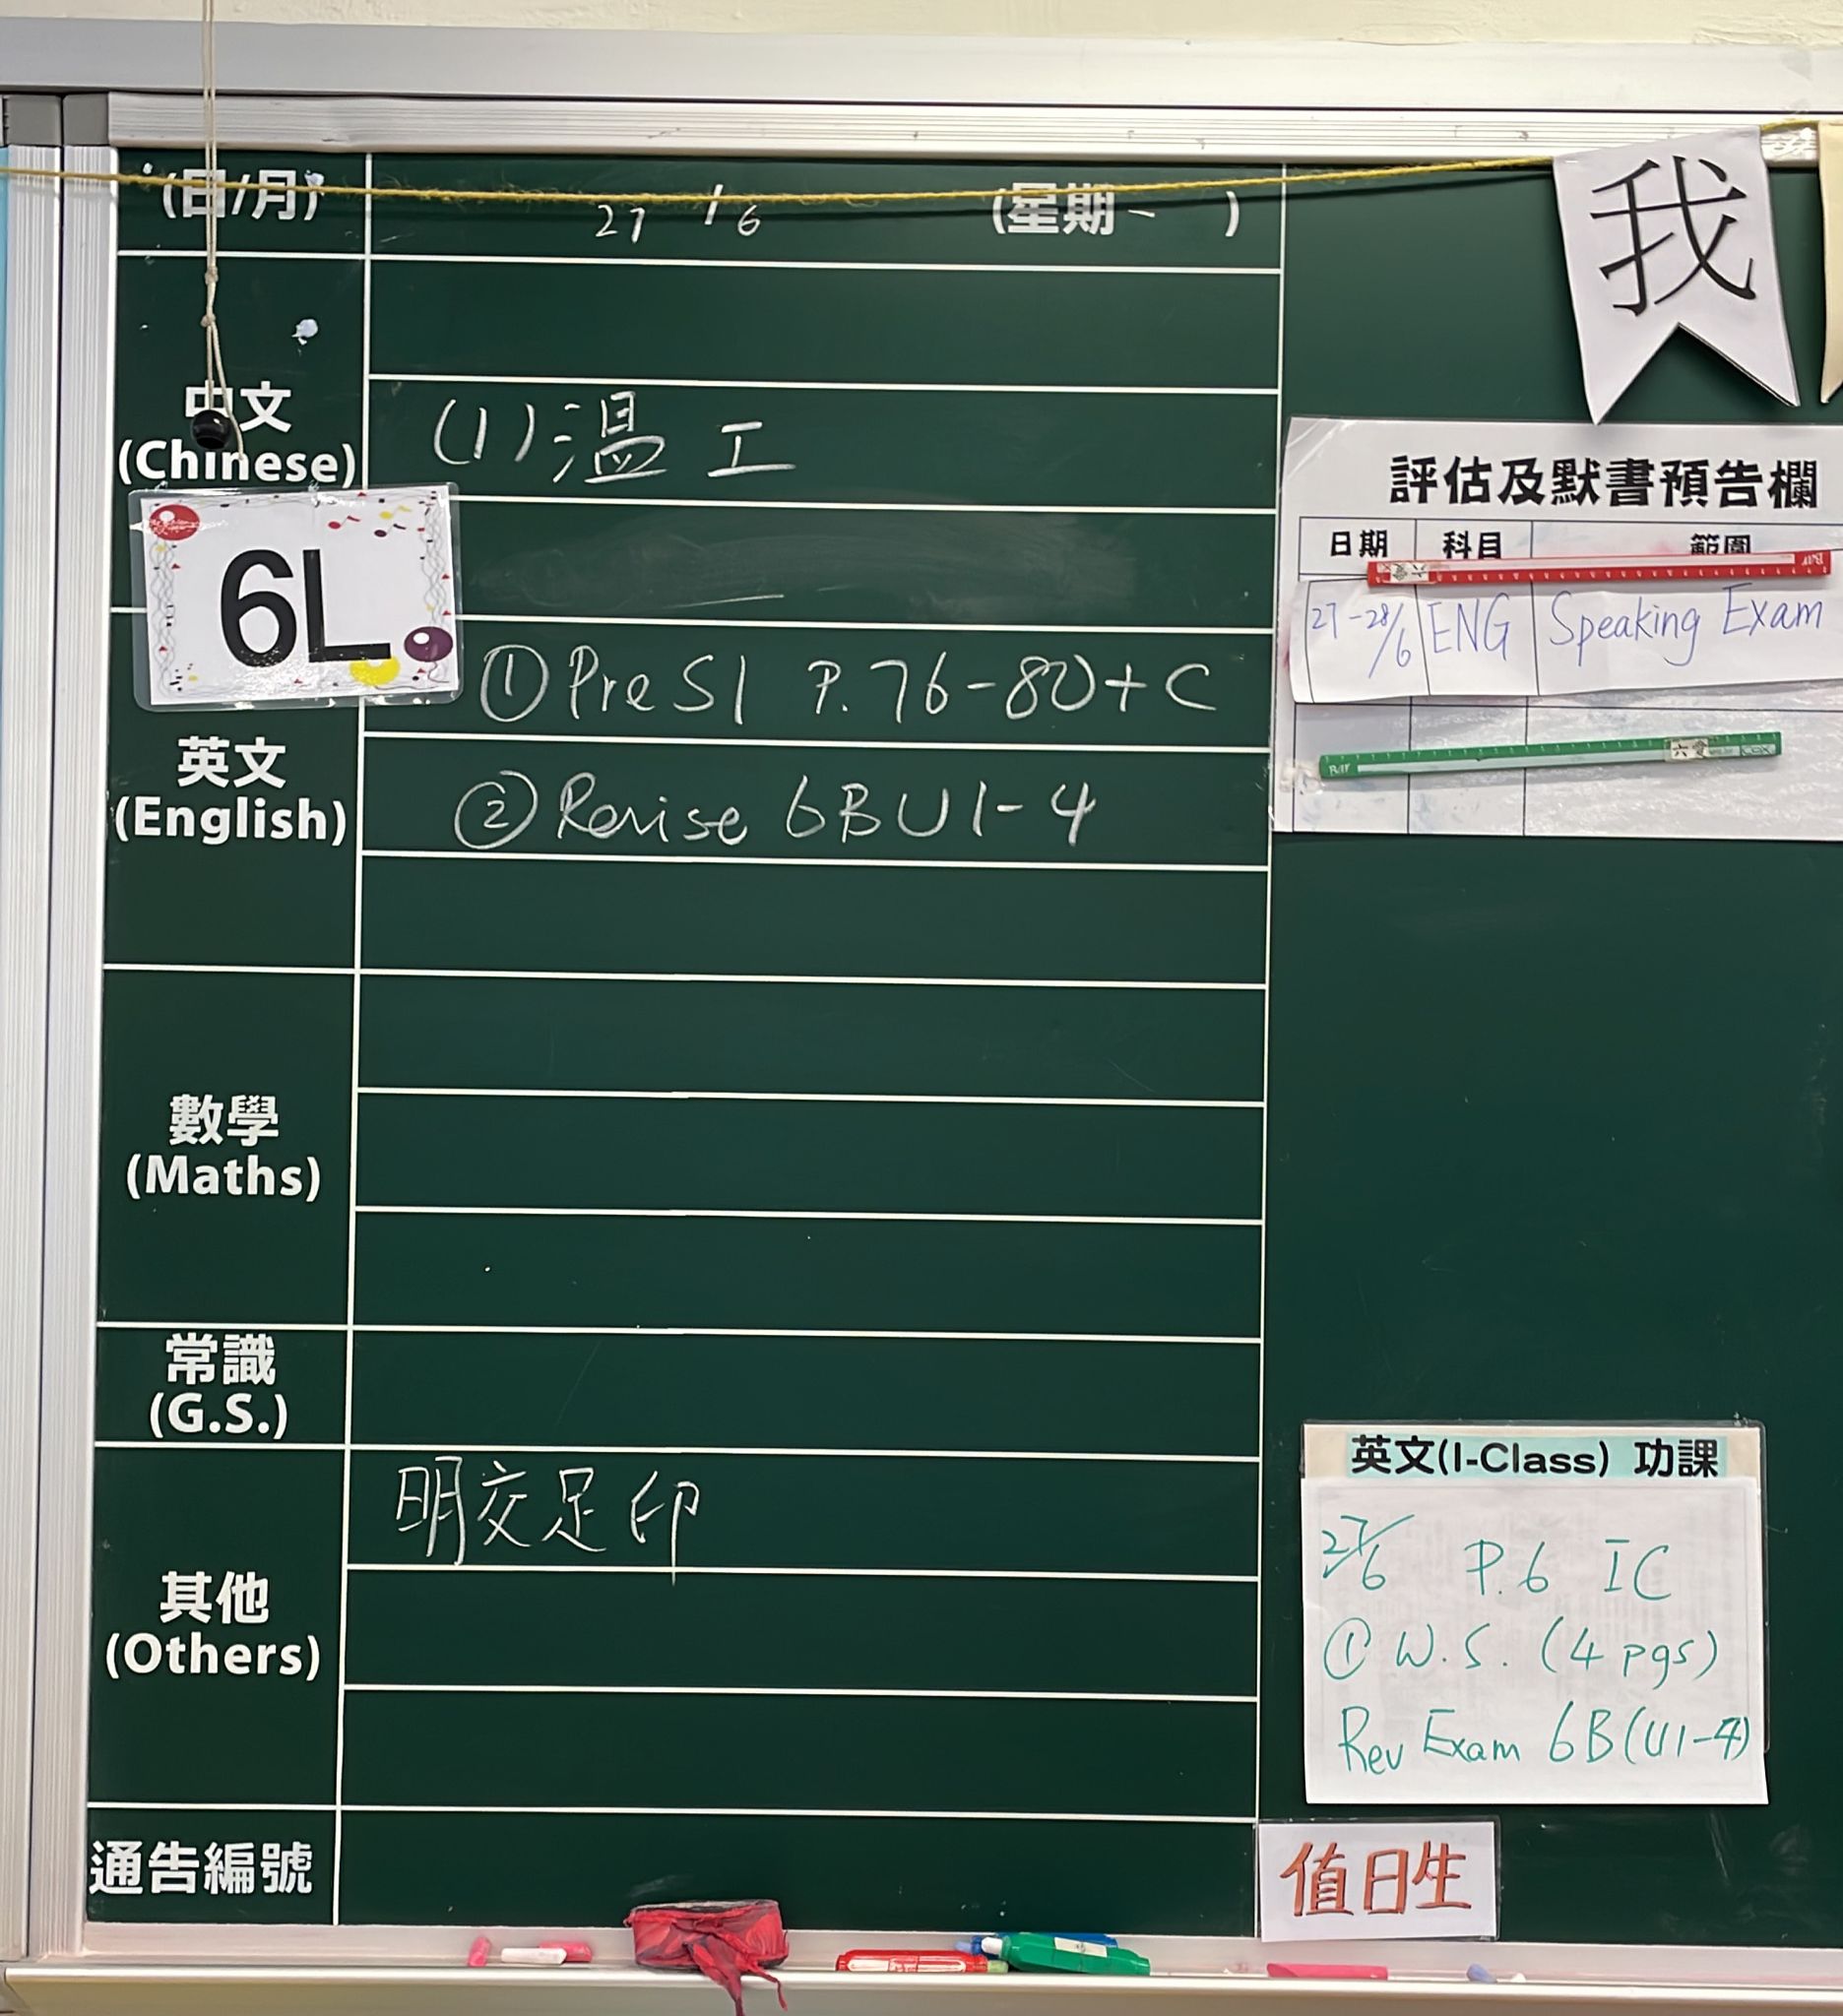 (日/月) 27/6 (星期一 )
中文
(Chinese)
(1)溫工
6L
英文
(English)
①Pre S1 P.76-80+C
②Revise 6B U1-4
數學
(Maths)
常識
(G.S.)
其他
(Others)
明交足印
通告編號
我
評估及默書預告欄
日期 科目 範圍
27-28/6 ENG Speaking Exam
英文(I-Class) 功課
27/6 P.6 IC
① W.S. (4 pgs)
Rev Exam 6B(U1-4)
值日生